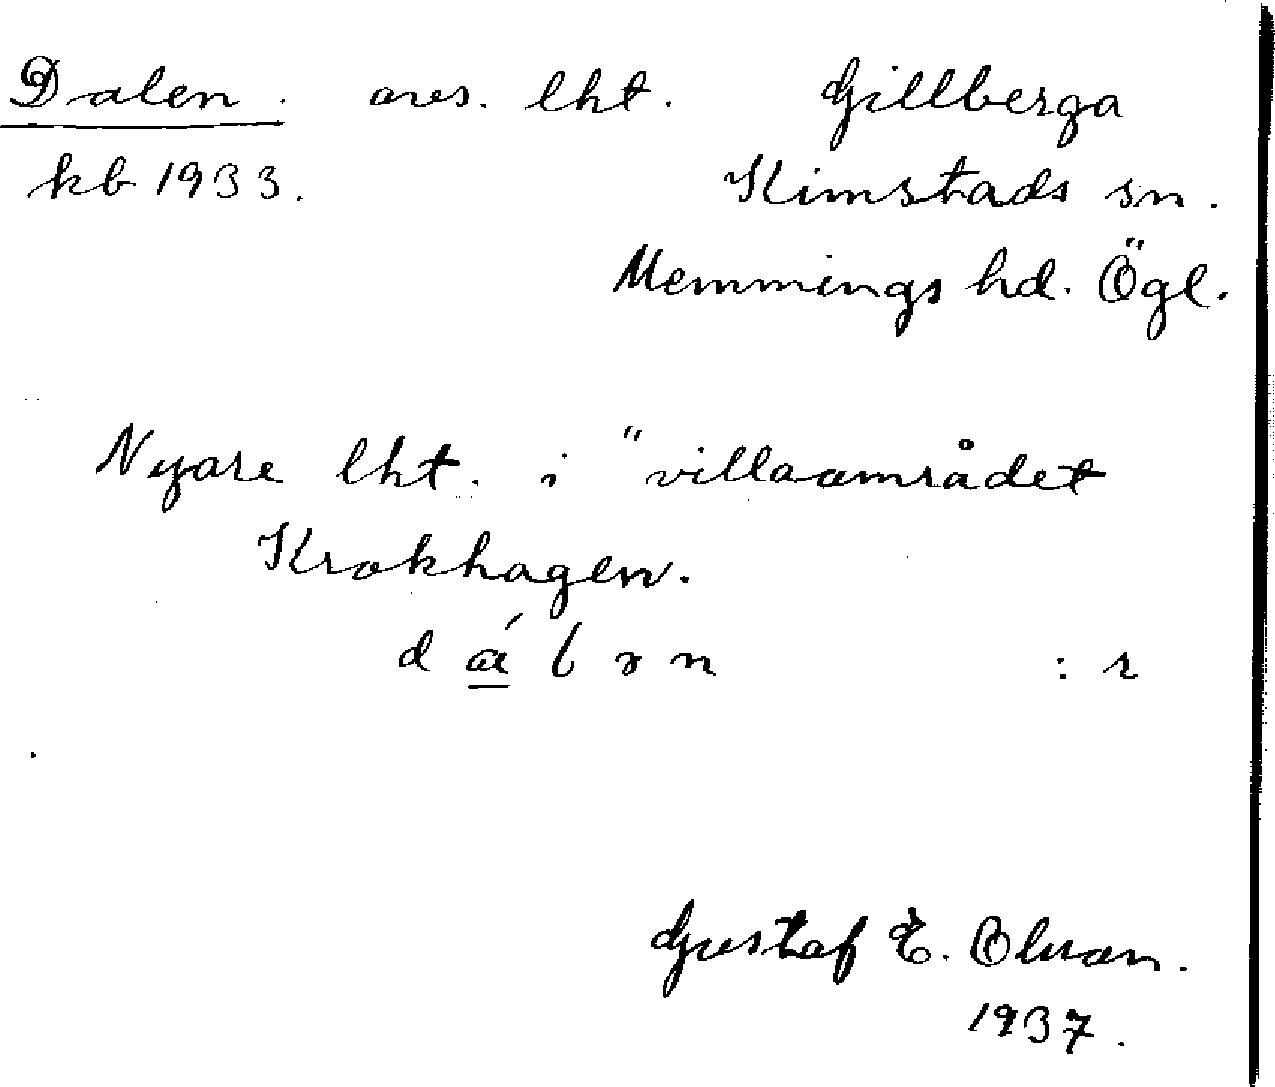 Dalen. avs. lht. Gillberga
kb 1933. Kimstads sn.
Memmings hd. Ögl.
Nyare lht. i "villaområdet
Krokhagen.
: r
Gustaf E. Olsson.
1937.